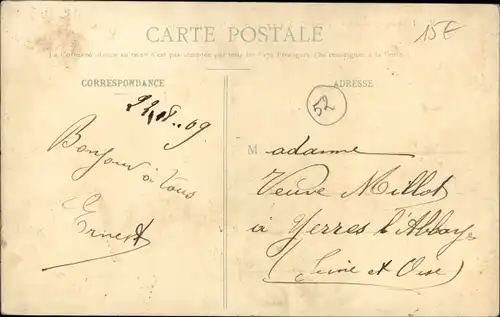 CARTE POSTALE
15E
La Correspondance au recto n'est pas acceptée par tous les Pays Etrangers. (Se renseigner à la Poste)
CORRESPONDANCE
ADRESSE
52
09
Bonjour
à Vous
Ernest
Madame
Veuve Millot
à Yerres l'Abbaye
(Seine et Oise)